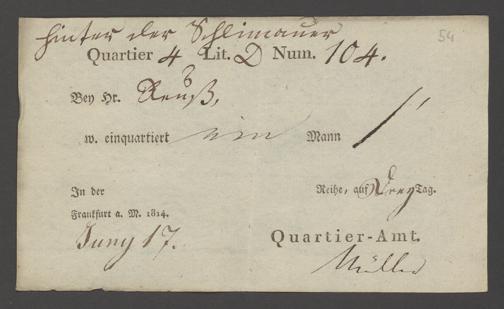 hinter der Schlimauer
54
Quartier 4 Lit. D Num. 104.
Bey Hr. Reuß,
w. einquartiert ein Mann 1
In der Reihe, auf Drey Tag.
Frankfurt a. M. 1814.
Juny 17.
Quartier-Amt.
Müller